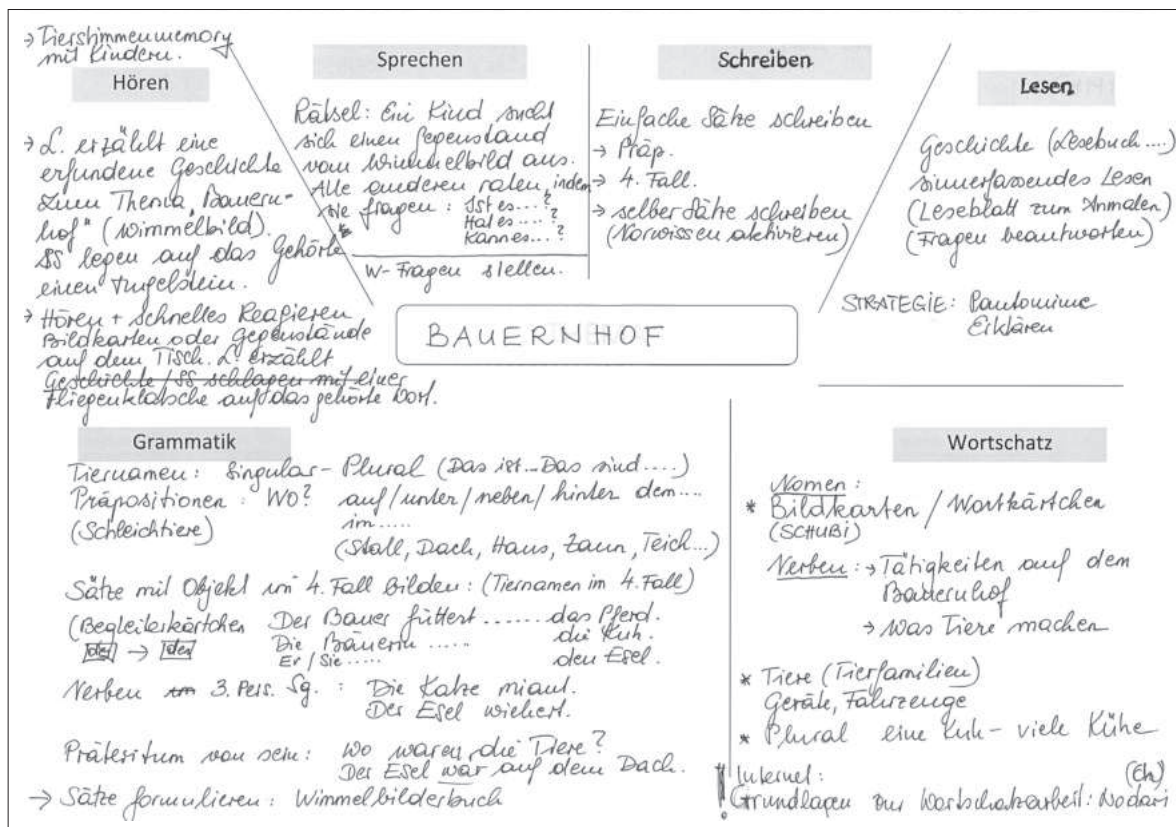 → Tierstimmenmemory
mit Kindern.
Hören
→ L. erzählt eine
erfundene Geschichte
zum Thema „Bauern-
hof" (Wimmelbild).
SS legen auf das Gehörte
einen Muggelstein.
→ Hören + schnelles Reagieren
Bildkarten oder Gegenstände
auf dem Tisch. L. erzählt
Geschichte / SS schlagen mit einer
Fliegenklatsche auf das gehörte Wort.
Sprechen
Rätsel: Ein Kind sucht
sich einen Gegenstand
vom Wimmelbild aus.
Alle anderen raten, indem
sie fragen: Ist es....?
Hat es....?
Kann es....?
W-Fragen stellen.
Schreiben
Einfache Sätze schreiben
→ Präp.
→ 4. Fall.
→ selber Sätze schreiben
(Vorwissen aktivieren)
Lesen
Geschichte (Lesebuch ....)
sinnerfassendes Lesen
(Leseblatt zum Anmalen)
(Fragen beantworten)
STRATEGIE: Pantomime
Erklären
BAUERNHOF
Grammatik
Tiernamen: Singular - Plural (Das ist... Das sind....)
Präpositionen: Wo? auf/unter/neben/hinter dem....
(Schleichtiere) im.....
(Stall, Dach, Haus, Zaun, Teich...)
Sätze mit Objekt im 4. Fall bilden: (Tiernamen im 4. Fall)
(Begleiterkärtchen Der Bauer füttert ....... das Pferd.
der → den Die Bäuerin ..... die Kuh.
Er / Sie..... den Esel.
Verben 3. Pers. Sg. : Die Katze miaut.
Der Esel wiehert.
Präteritum von sein: Wo waren die Tiere?
Der Esel war auf dem Dach.
→ Sätze formulieren: Wimmelbilderbuch
Wortschatz
Nomen:
* Bildkarten / Wortkärtchen
(SCHUBI)
Verben: → Tätigkeiten auf dem
Bauernhof
→ Was Tiere machen
* Tiere (Tierfamilien)
Geräte, Fahrzeuge
* Plural eine Kuh - viele Kühe
! Internet: (Ch)
Grundlagen zur Wortschatzarbeit: Nodari